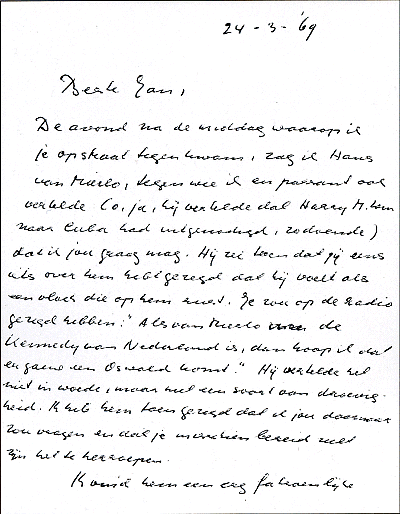 24-3-'69
Beste Jan,
De avond na de middag waarop ik
je op straat tegen kwam, zag ik Hans
van Mierlo, tegen wie ik en passant ook
vertelde (o, ja, hij vertelde dat Harry M. hem
naar Cuba had uitgenodigd, zodoende)
dat ik jou graag mag. Hij zei toen dat jij eens
iets over hem hebt gezegd dat hij voelt als
een vloek die op hem rust. "Je zou op de radio
gezegd hebben: "Als van Mierlo de
Kennedy van Nederland is, dan hoop ik dat
er gauw een Oswald komt." Hij vertelde het
niet in woede, maar met een soort van droevig-
heid. Ik heb hem toen gezegd dat ik jou daarnaar
zou vragen en dat je misschien bereid zult
zijn het te herroepen.
Ik vind hem een erg fatsoenlijke